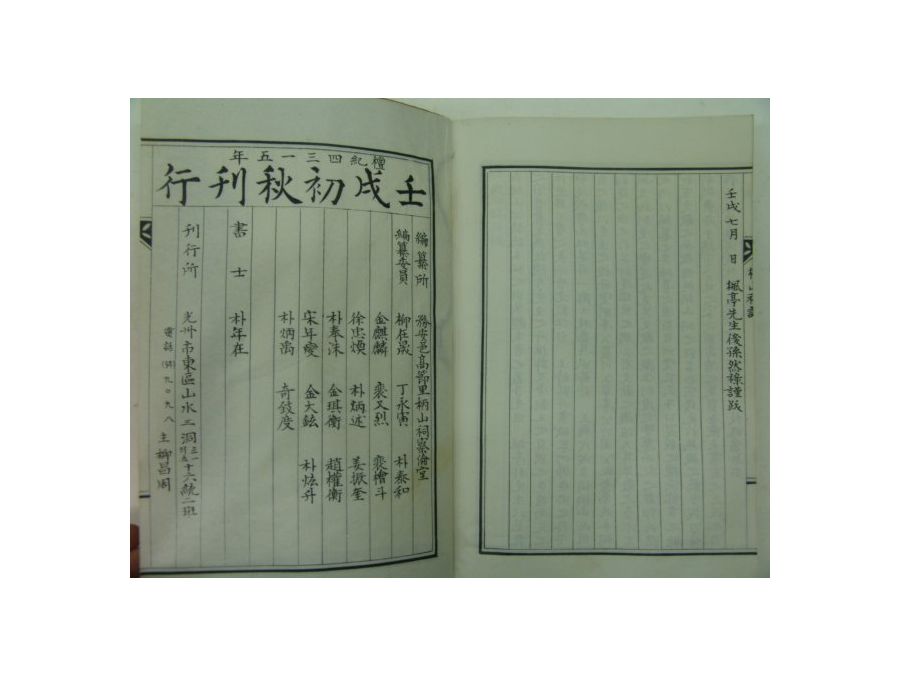 壬戌七月　日　楓亭先生後孫然祿謹跋
檀紀四三一五年
壬戌初秋刊行
編纂所　務安邑高節里柄山祠彛倫堂
編纂委員　柳在晟　丁永寅　朴泰和
金麒麟　裵又烈　裵檜斗
徐忠煥　朴炳述　姜振奎
朴奉洙　金琪衡　趙權衡
宋年燮　金大鉉　朴炫升
朴炳禹　奇蓂度
書士　朴年在
刊行所　光州市東區山水二洞　十六統二班
電話　九〇九八　主　柳昌